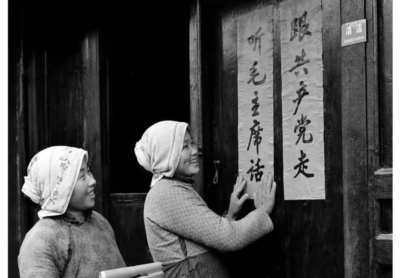 跟共产党走
听毛主席话
清洁